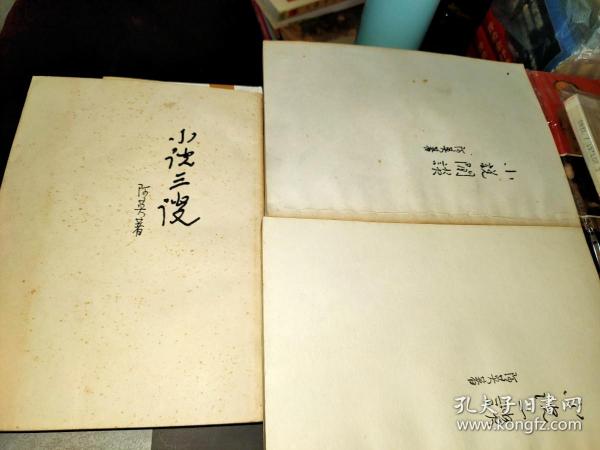 小说三谈
阿英著
小説閒談
阿英著
小説二談
阿英著
孔夫子旧书网
www.kongfz.com